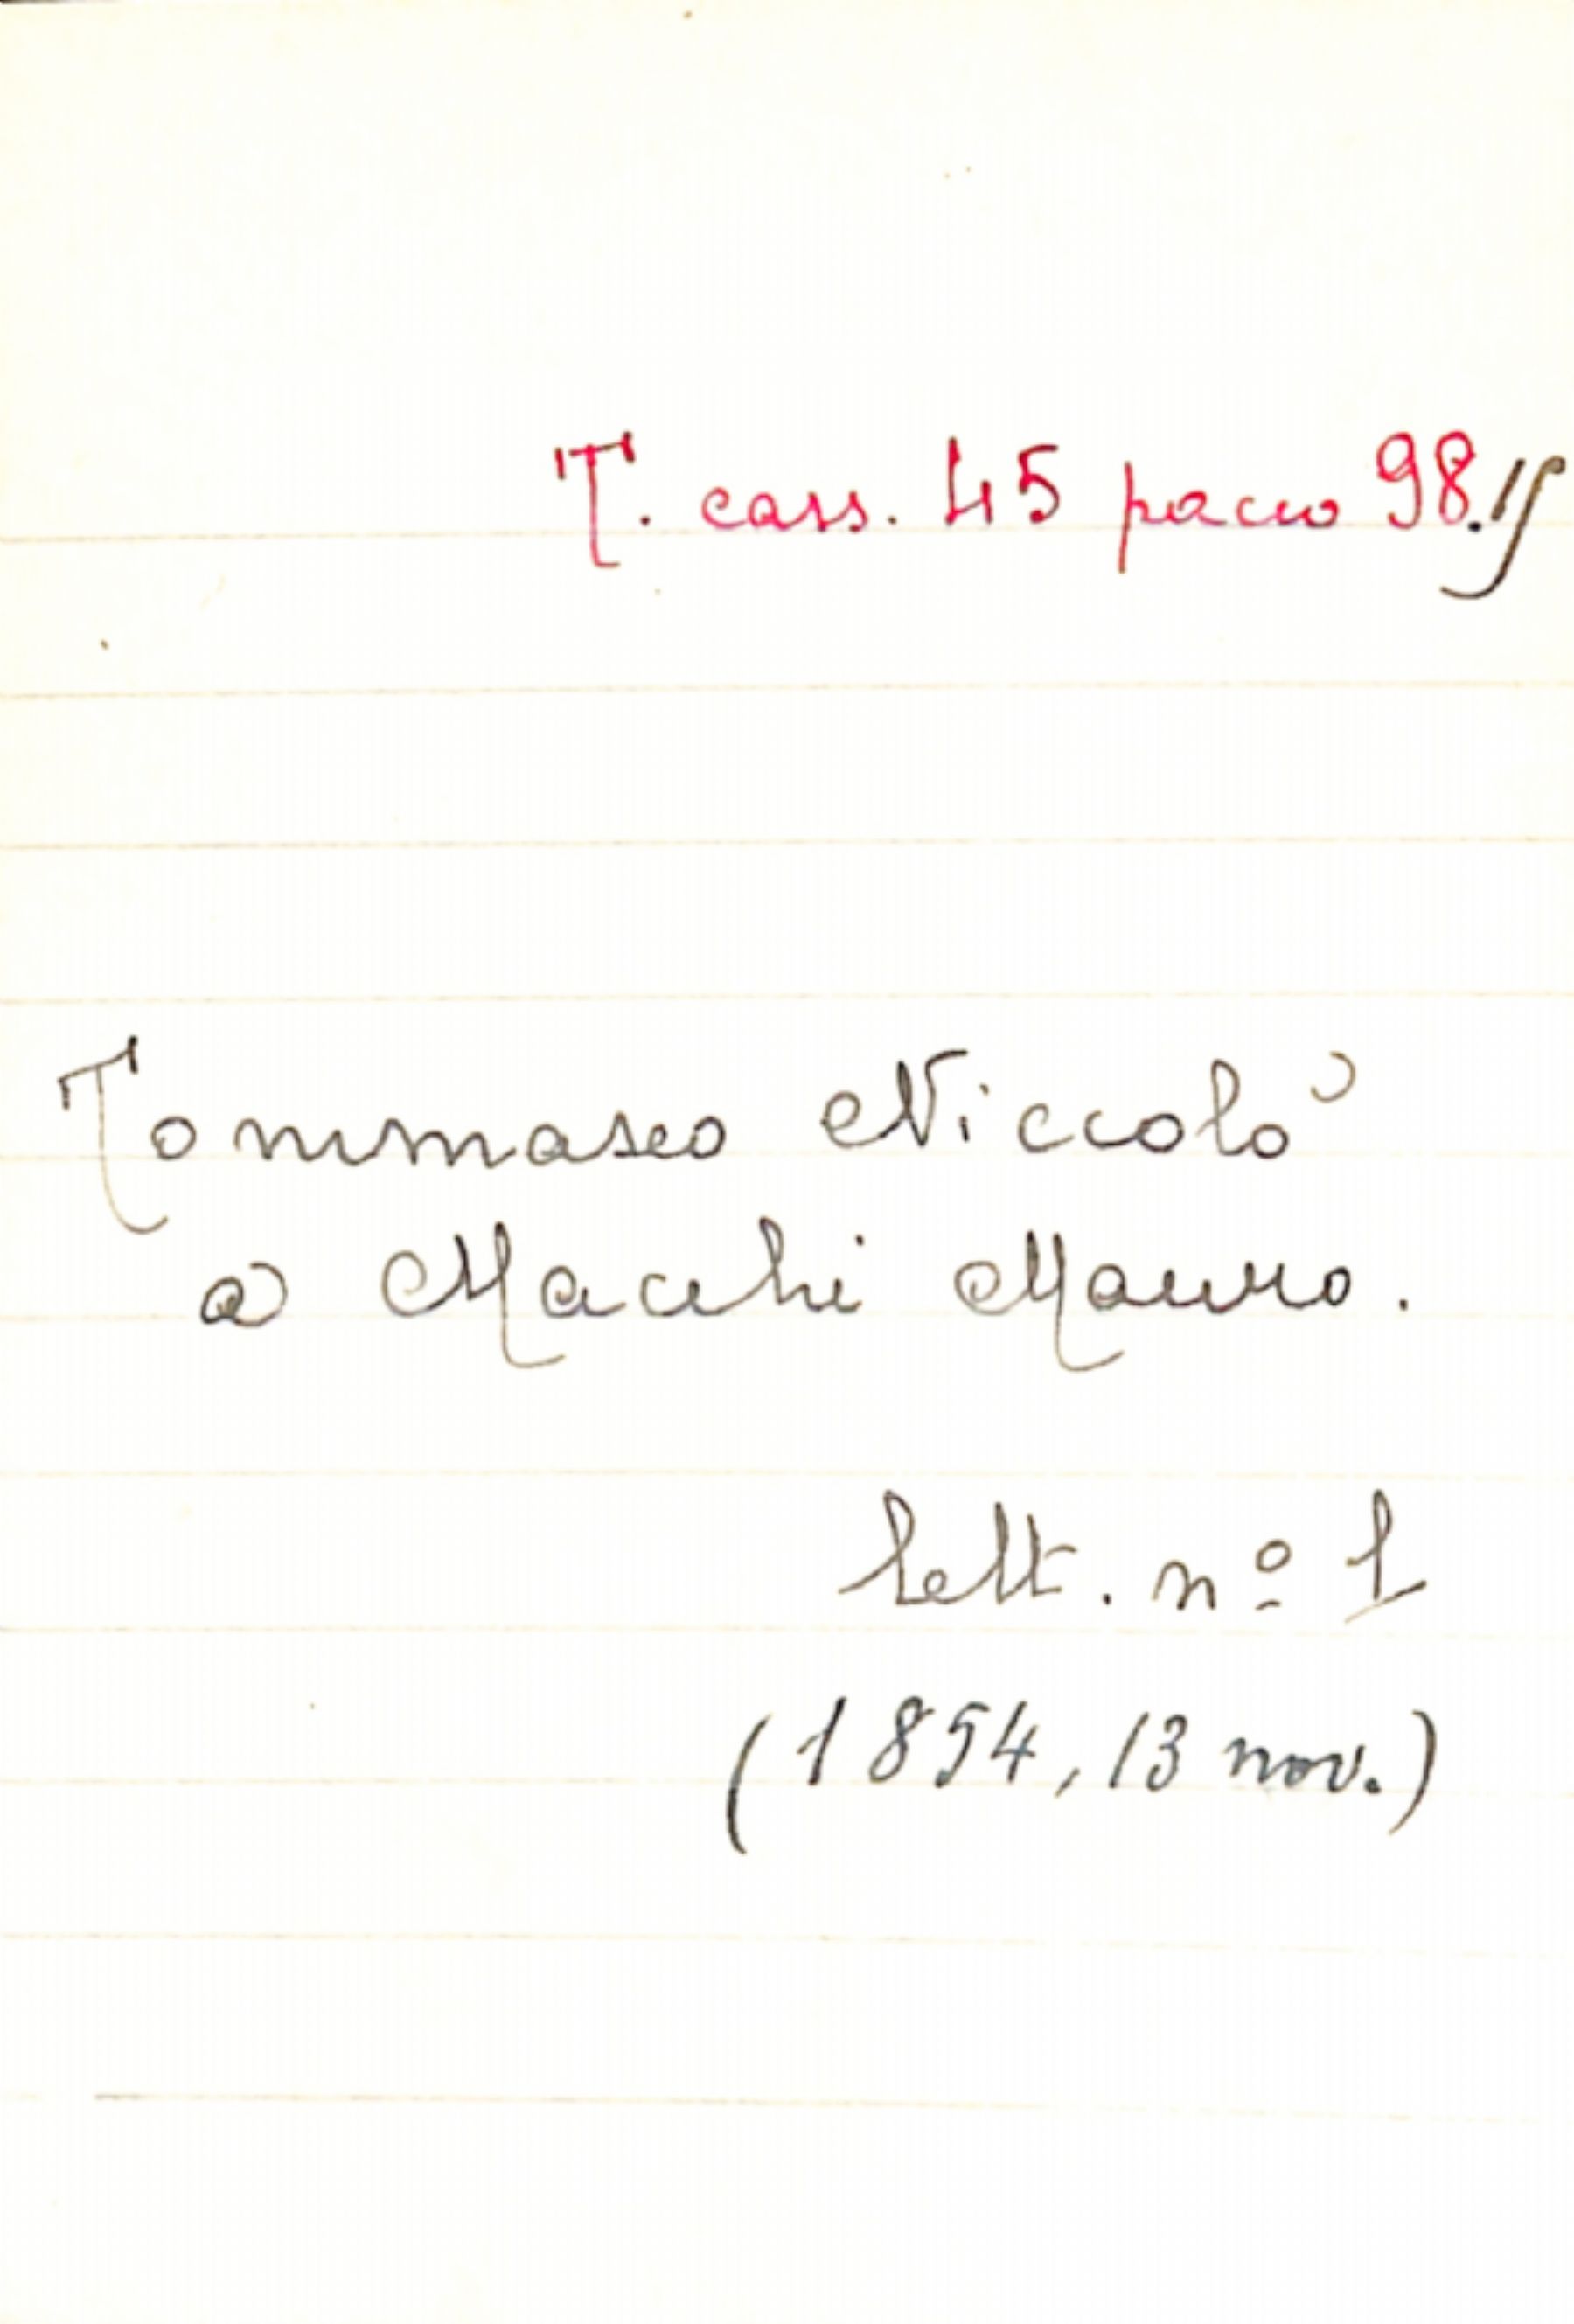 T. cass. 45 pacco 98.15
Tommaseo Niccolò
a Macchi Mauro.
lett. nº 1
(1854, 13 nov.)